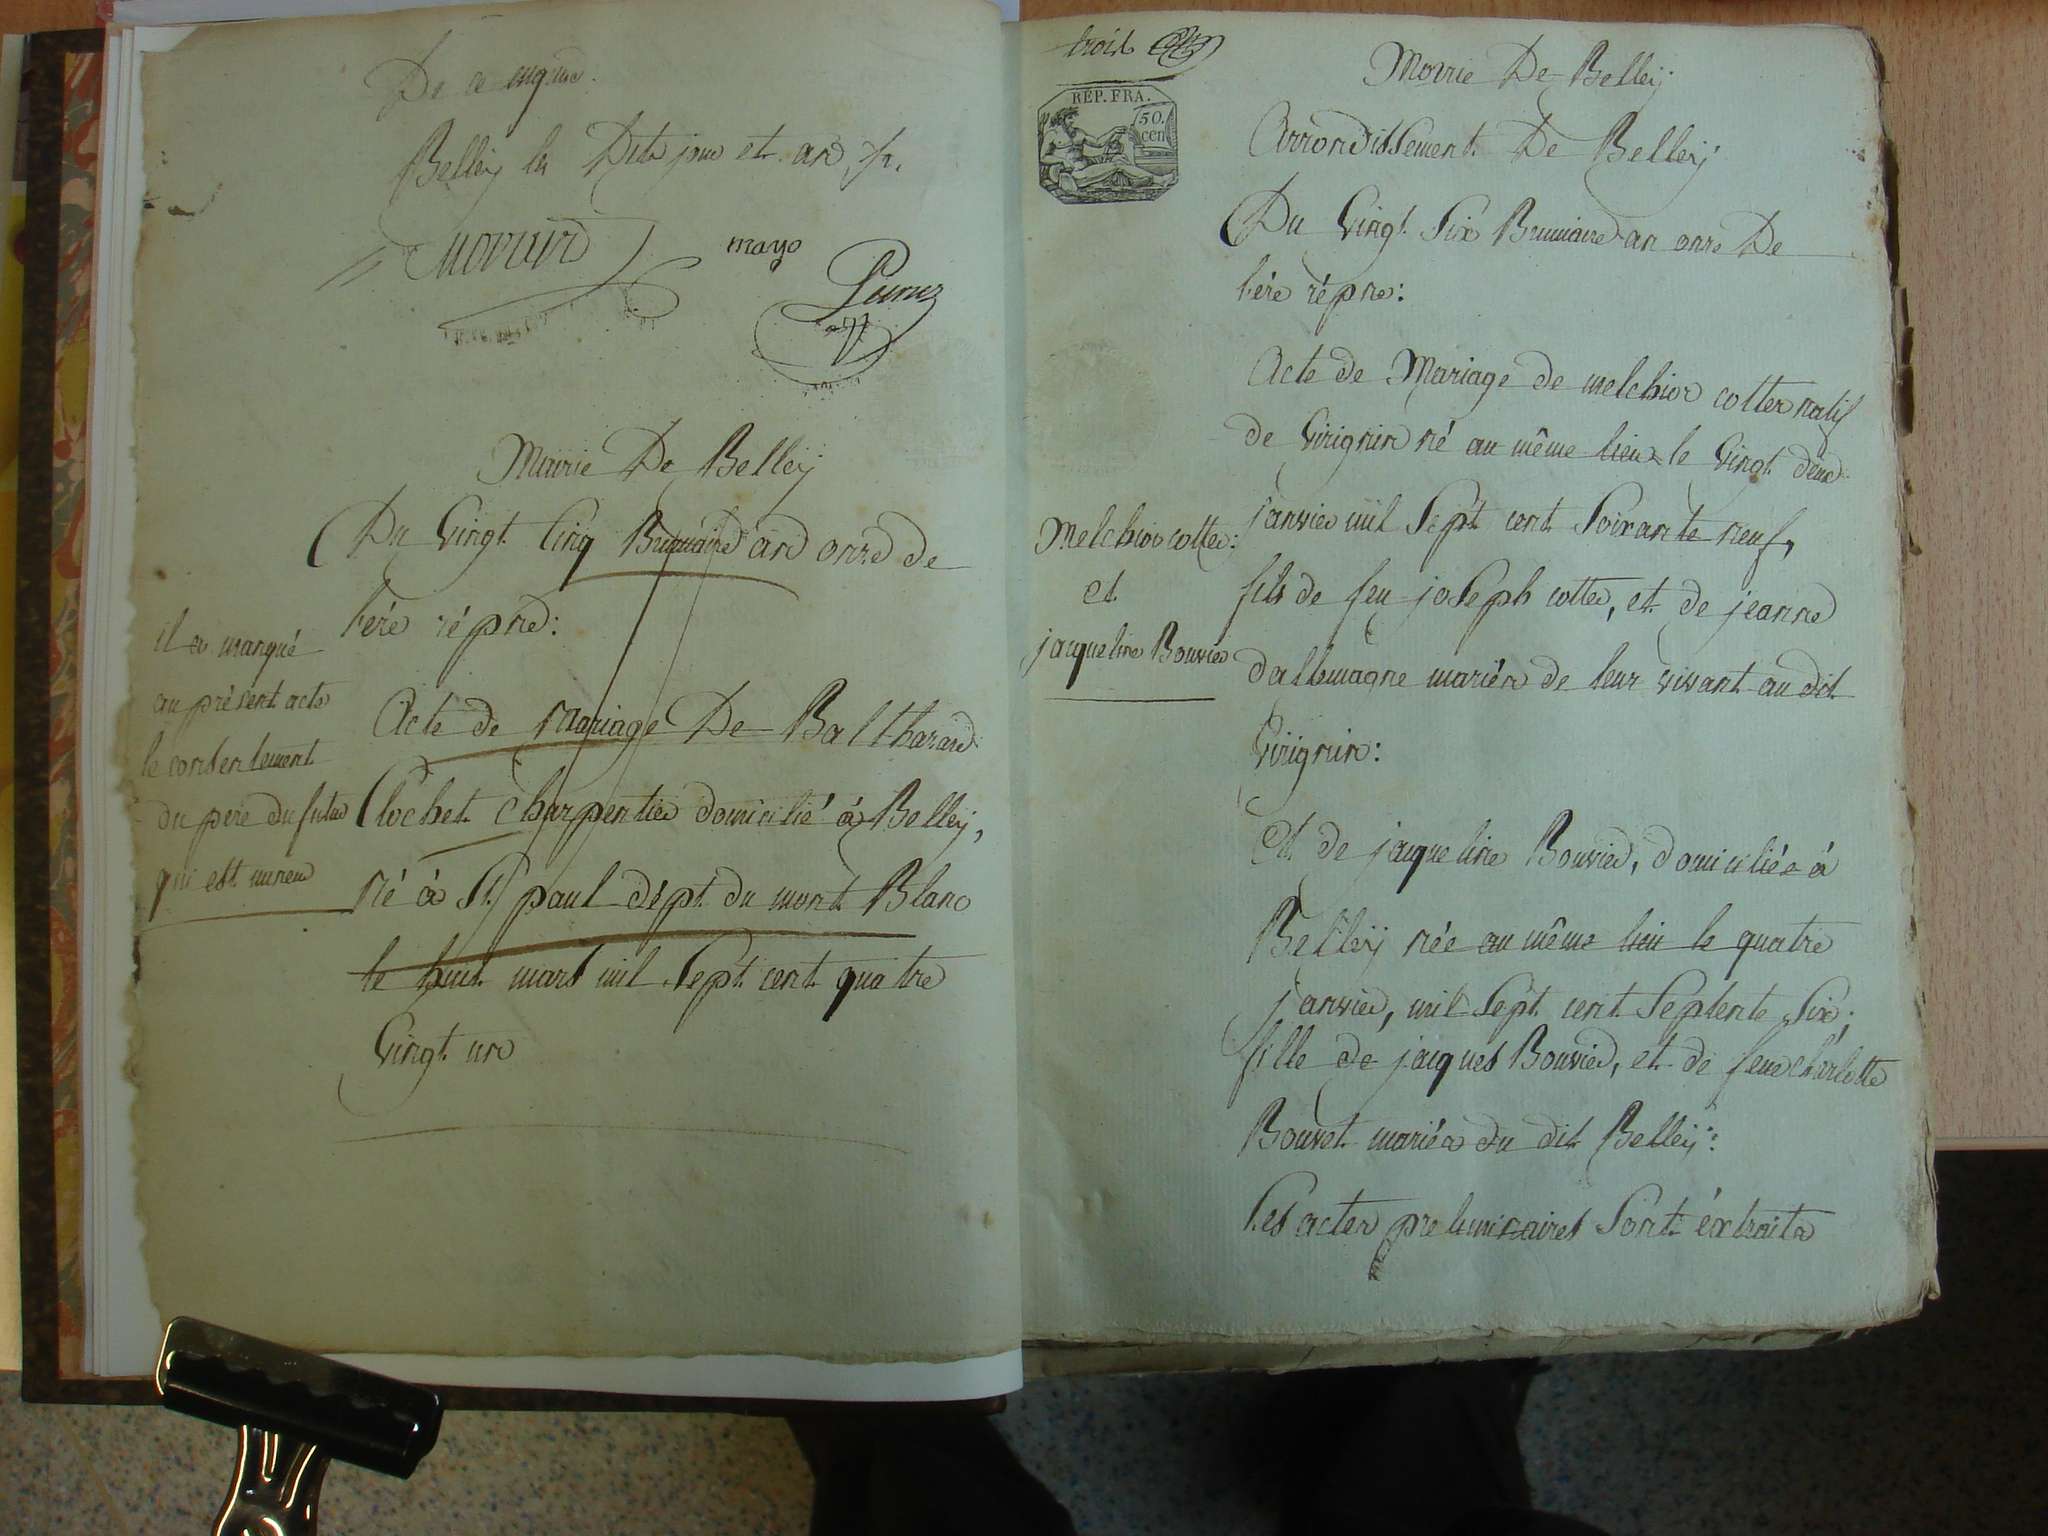 De ce enquis
Belley les Dits jour et an
mayo
Mairie De Belley
Du Vingt Cinq Brumaire an onze de
l'ère répne:
il a manqué
au présent acte
le consentement
du père du futur
qui est mineur
Acte de Mariage De Balthazard
Clochet Charpentier domicilié à Belley,
né à St paul dépt. du mont Blanc
le huit mars mil Sept cent quatre
Vingt un
trois
REP. FRA.
50.
cen
Mairie De Belley
Arrondissement De Belley
Du Vingt Six Brumaire an onze De
l'ère répne:
Acte de Mariage de melchior cotter natif
de Virignin né au même lieu le Vingt deux
janvier mil Sept cent Soixante neuf,
fils de feu joseph cotter, et de jeanne
dallemagne mariés de leur vivant au dit
Virignin:
Melchior cotter:
et
jacqueline Bouvier
Et de jacqueline Bouvier, domiciliée à
Belley née au même lieu le quatre
janvier, mil Sept cent Septente Six;
fille de jacques Bouvier, et de feue charlotte
Bouvet mariés du dit Belley:
Les actes preliminaires Sont éxtraits